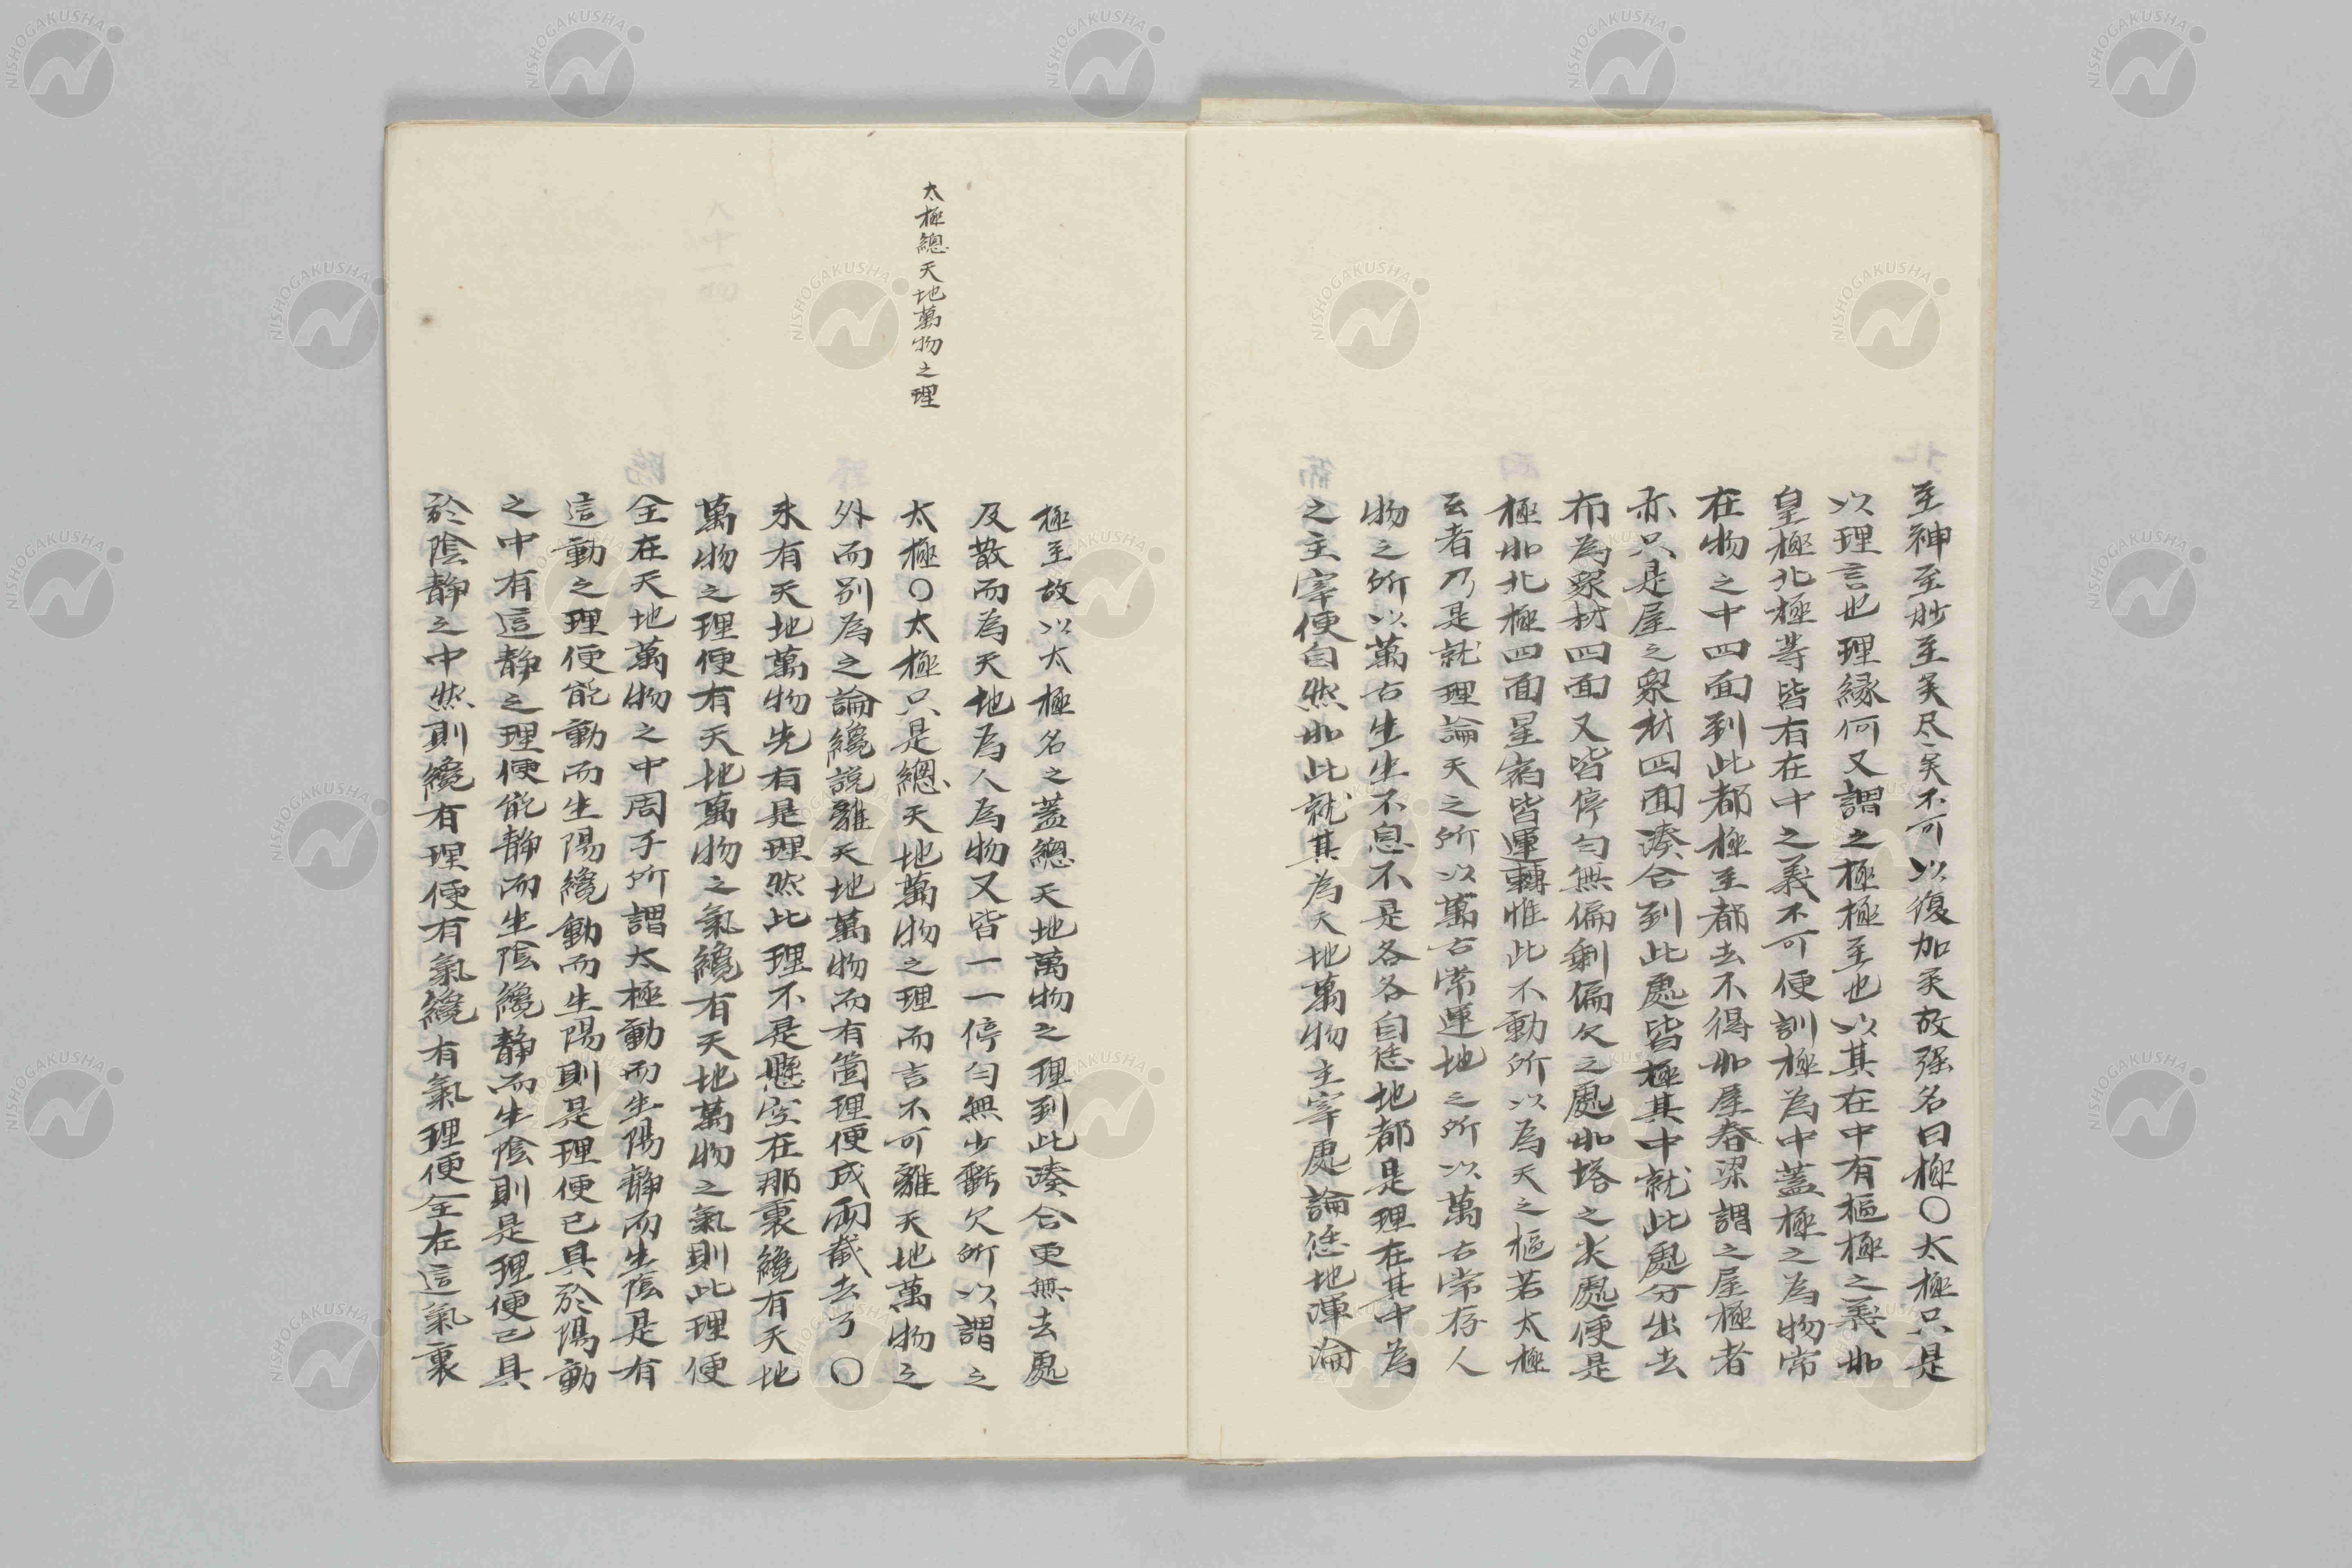 至神至妙至矣尽矣不可以復加矣故强名曰極〇太極只是
以理言也理縁何又謂之極極至也以其在中有樞極之義如
皇極北極等皆有在中之義不可便訓極為中蓋極之為物常
在物之中四面到此都極至都去不得如屋脊梁謂之屋極者
亦只是屋之衆材四面湊合到此處皆極其中就此處分出去
布為衆材四面又皆停匀無偏剰偏欠之處如塔之尖處便是
極如北極四面星宿皆運轉惟此不動所以為天之樞若太極
云者乃是就理論天之所以萬古常運地之所以萬古常存人
物之所以萬古生生不息不是各各自恁地都是理在其中為
之主宰便自然如此就其為天地萬物主宰處論恁地渾淪
極至故以太極名之蓋總天地萬物之理到此湊合更無去處
及散而為天地為人為物又皆一一停匀無少虧欠所以謂之
太極總天地萬物之理
太極〇太極只是總天地萬物之理而言不可離天地萬物之
外而別為之論纔説離天地萬物而有箇理便成兩截去了〇
未有天地萬物先有是理然此理不是懸空在那裏纔有天地
萬物之理便有天地萬物之氣纔有天地萬物之氣則此理便
全在天地萬物之中周子所謂太極動而生陽靜而生陰是有
這動之理便能動而生陽纔動而生陽則是理便已具於陽動
之中有這靜之理便能靜而生陰纔靜而生陰則是理便已具
於陰靜之中然則纔有理便有氣纔有氣理便全在這氣裏
NISHOGAKUSHA